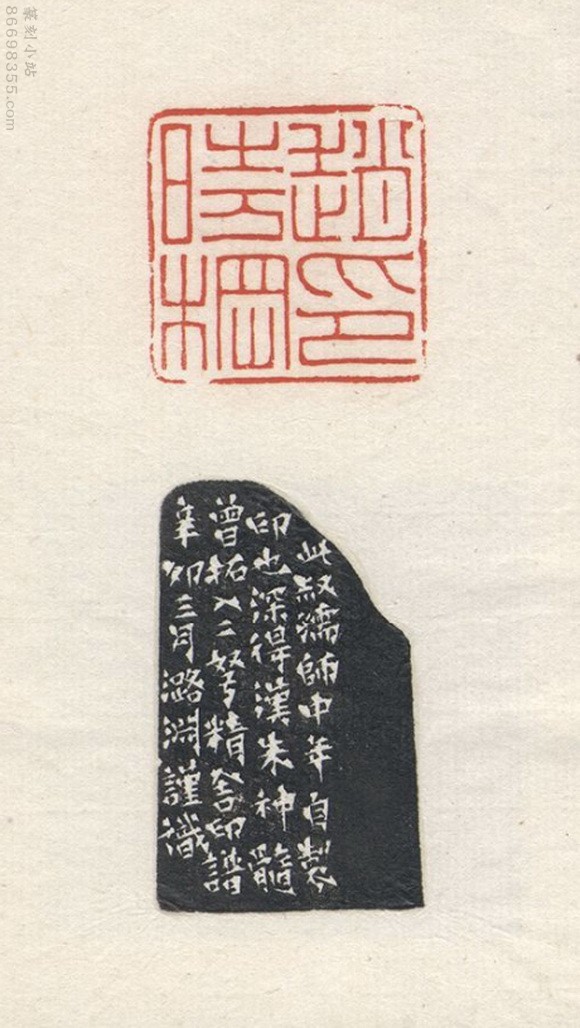 篆刻小站
86698355.com
趙印
時棡
此叔孺師中年自製
印也深得漢朱神髓
曾拓入二弩精舍印譜
辛卯三月潞淵謹識